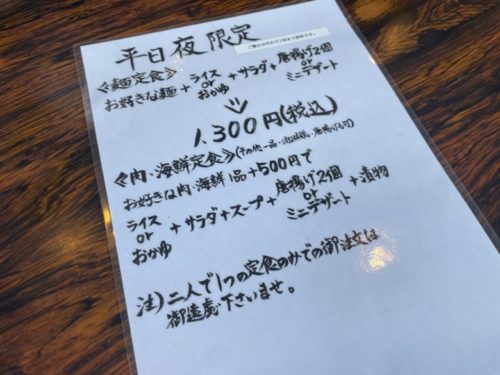 平日夜限定
≪麺定食≫
お好きな麺+ライス or おかゆ+サラダ+唐揚げ2個 or ミニデザート
⇓
1,300円(税込)
≪肉・海鮮定食≫(その他一品・
お好きな肉・海鮮1品+500円で
ライス or おかゆ+サラダ+スープ+唐揚げ2個 or ミニデザート+漬物
注)二人で1つの定食のみでの御注文は
御遠慮下さいませ。